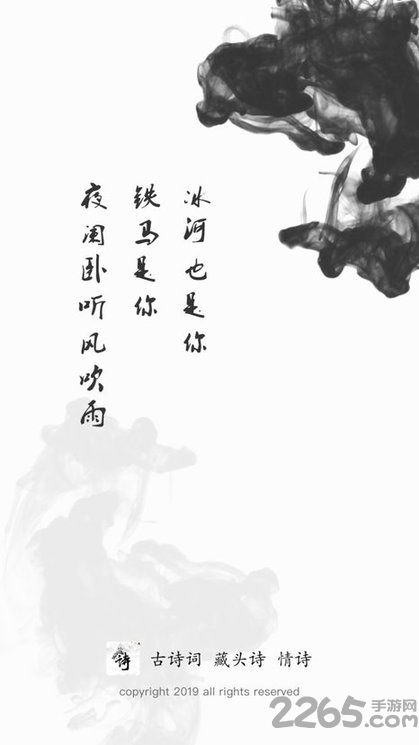 夜阑卧听风吹雨
铁马是你
冰河也是你
诗
古诗词 藏头诗 情诗
copyright 2019 all rights reserved
2265.com
手游网